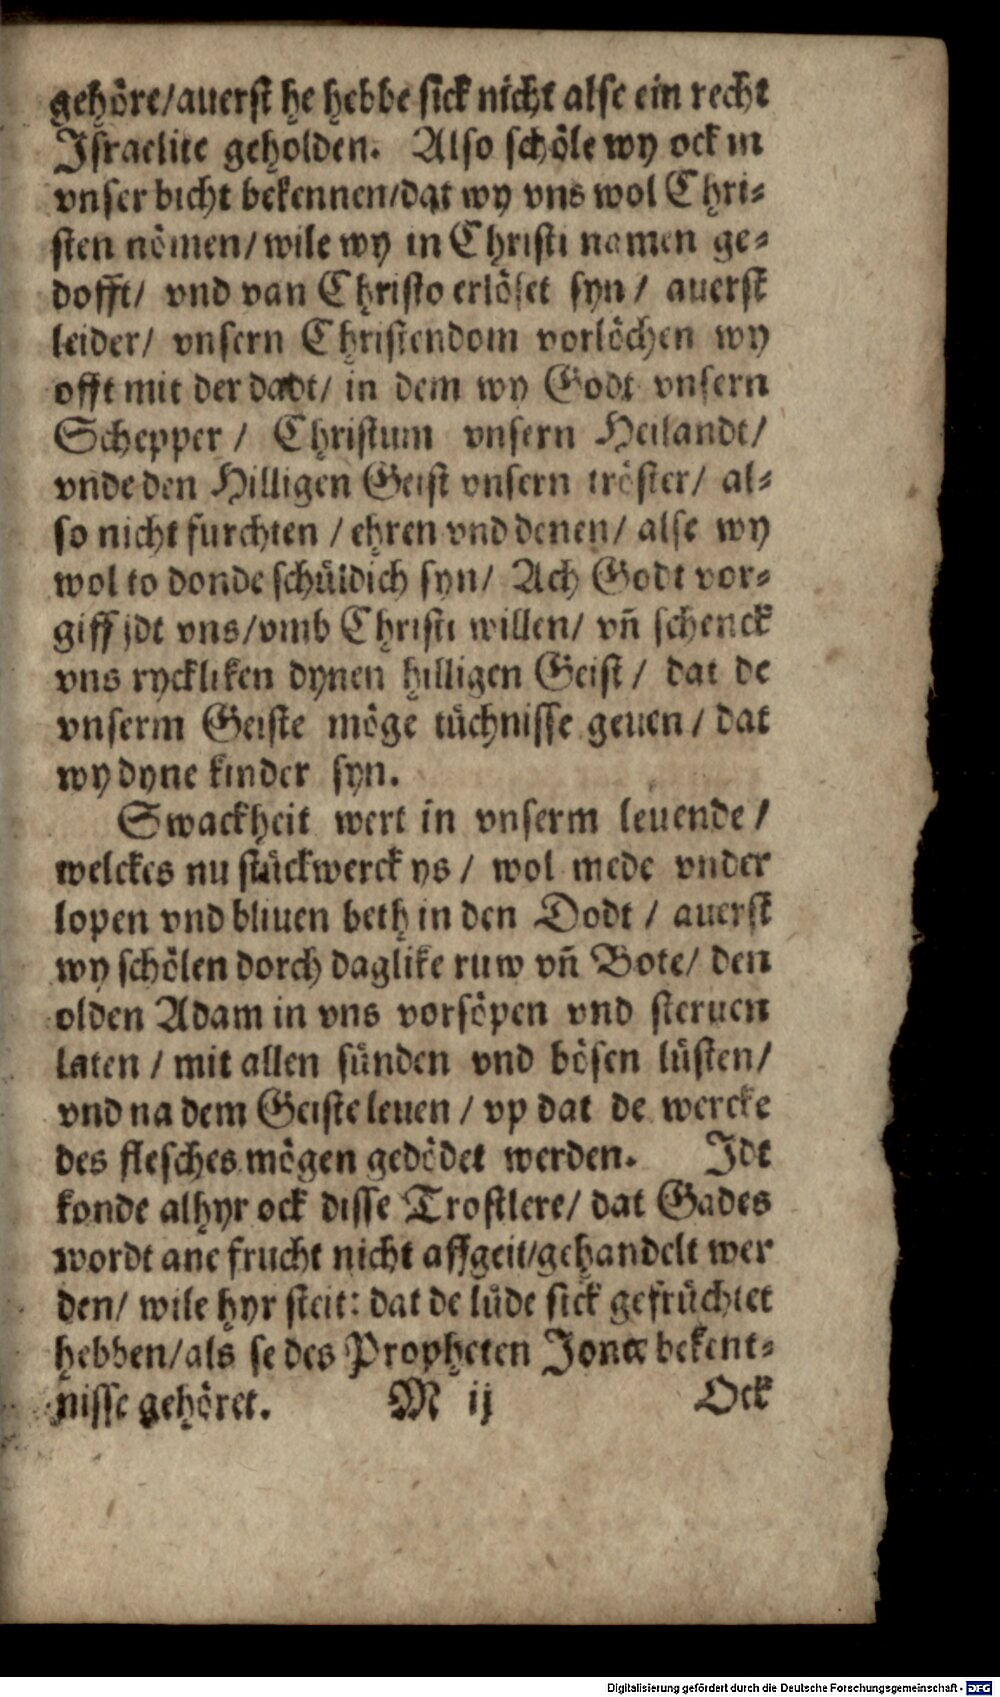 gehöre/auerst he hebbe sick nicht alse ein recht
Israelite geholden. Also schöle wy ock in
vnser bicht bekennen/dat wy vns wol Chri-
sten nömen/ wile wy in Christi namen ge-
dofft/ vnd van Christo erlöset syn / auerst
leider/ vnsern Christendom vorlöchen wy
offt mit der dadt/ in dem wy Godt vnsern
Schepper / Christum vnsern Heilandt/
vnde den Hilligen Geist vnsern tröster/ al-
so nicht furchten / ehren vnd denen/ alse wy
wol to donde schüldich syn/ Ach Godt vor-
giff jdt vns/vmb Christi willen/ vñ schenck
vns ryckliken dynen hilligen Geist / dat de
vnserm Geiste möge tüchnisse geuen / dat
wy dyne kinder syn.
Swackheit wert in vnserm leuende /
welckes nu stückwerck ys / wol mede vnder
lopen vnd bliuen beth in den Dodt / auerst
wy schölen dorch daglike ruw vñ Bote/ den
olden Adam in vns vorsöpen vnd steruen
laten / mit allen sünden vnd bösen lüsten/
vnd na dem Geiste leuen / vp dat de wercke
des flesches mögen gedödet werden. Idt
konde alhyr ock disse Trostlere/ dat Gades
wordt ane frucht nicht affgeit/gehandelt wer
den/ wile hyr steit: dat de lüde sick gefrüchtet
hebben/als se des Propheten Jonæ bekent-
nisse gehöret. M ij Ock
Digitalisierung gefördert durch die Deutsche Forschungsgemeinschaft - DFG